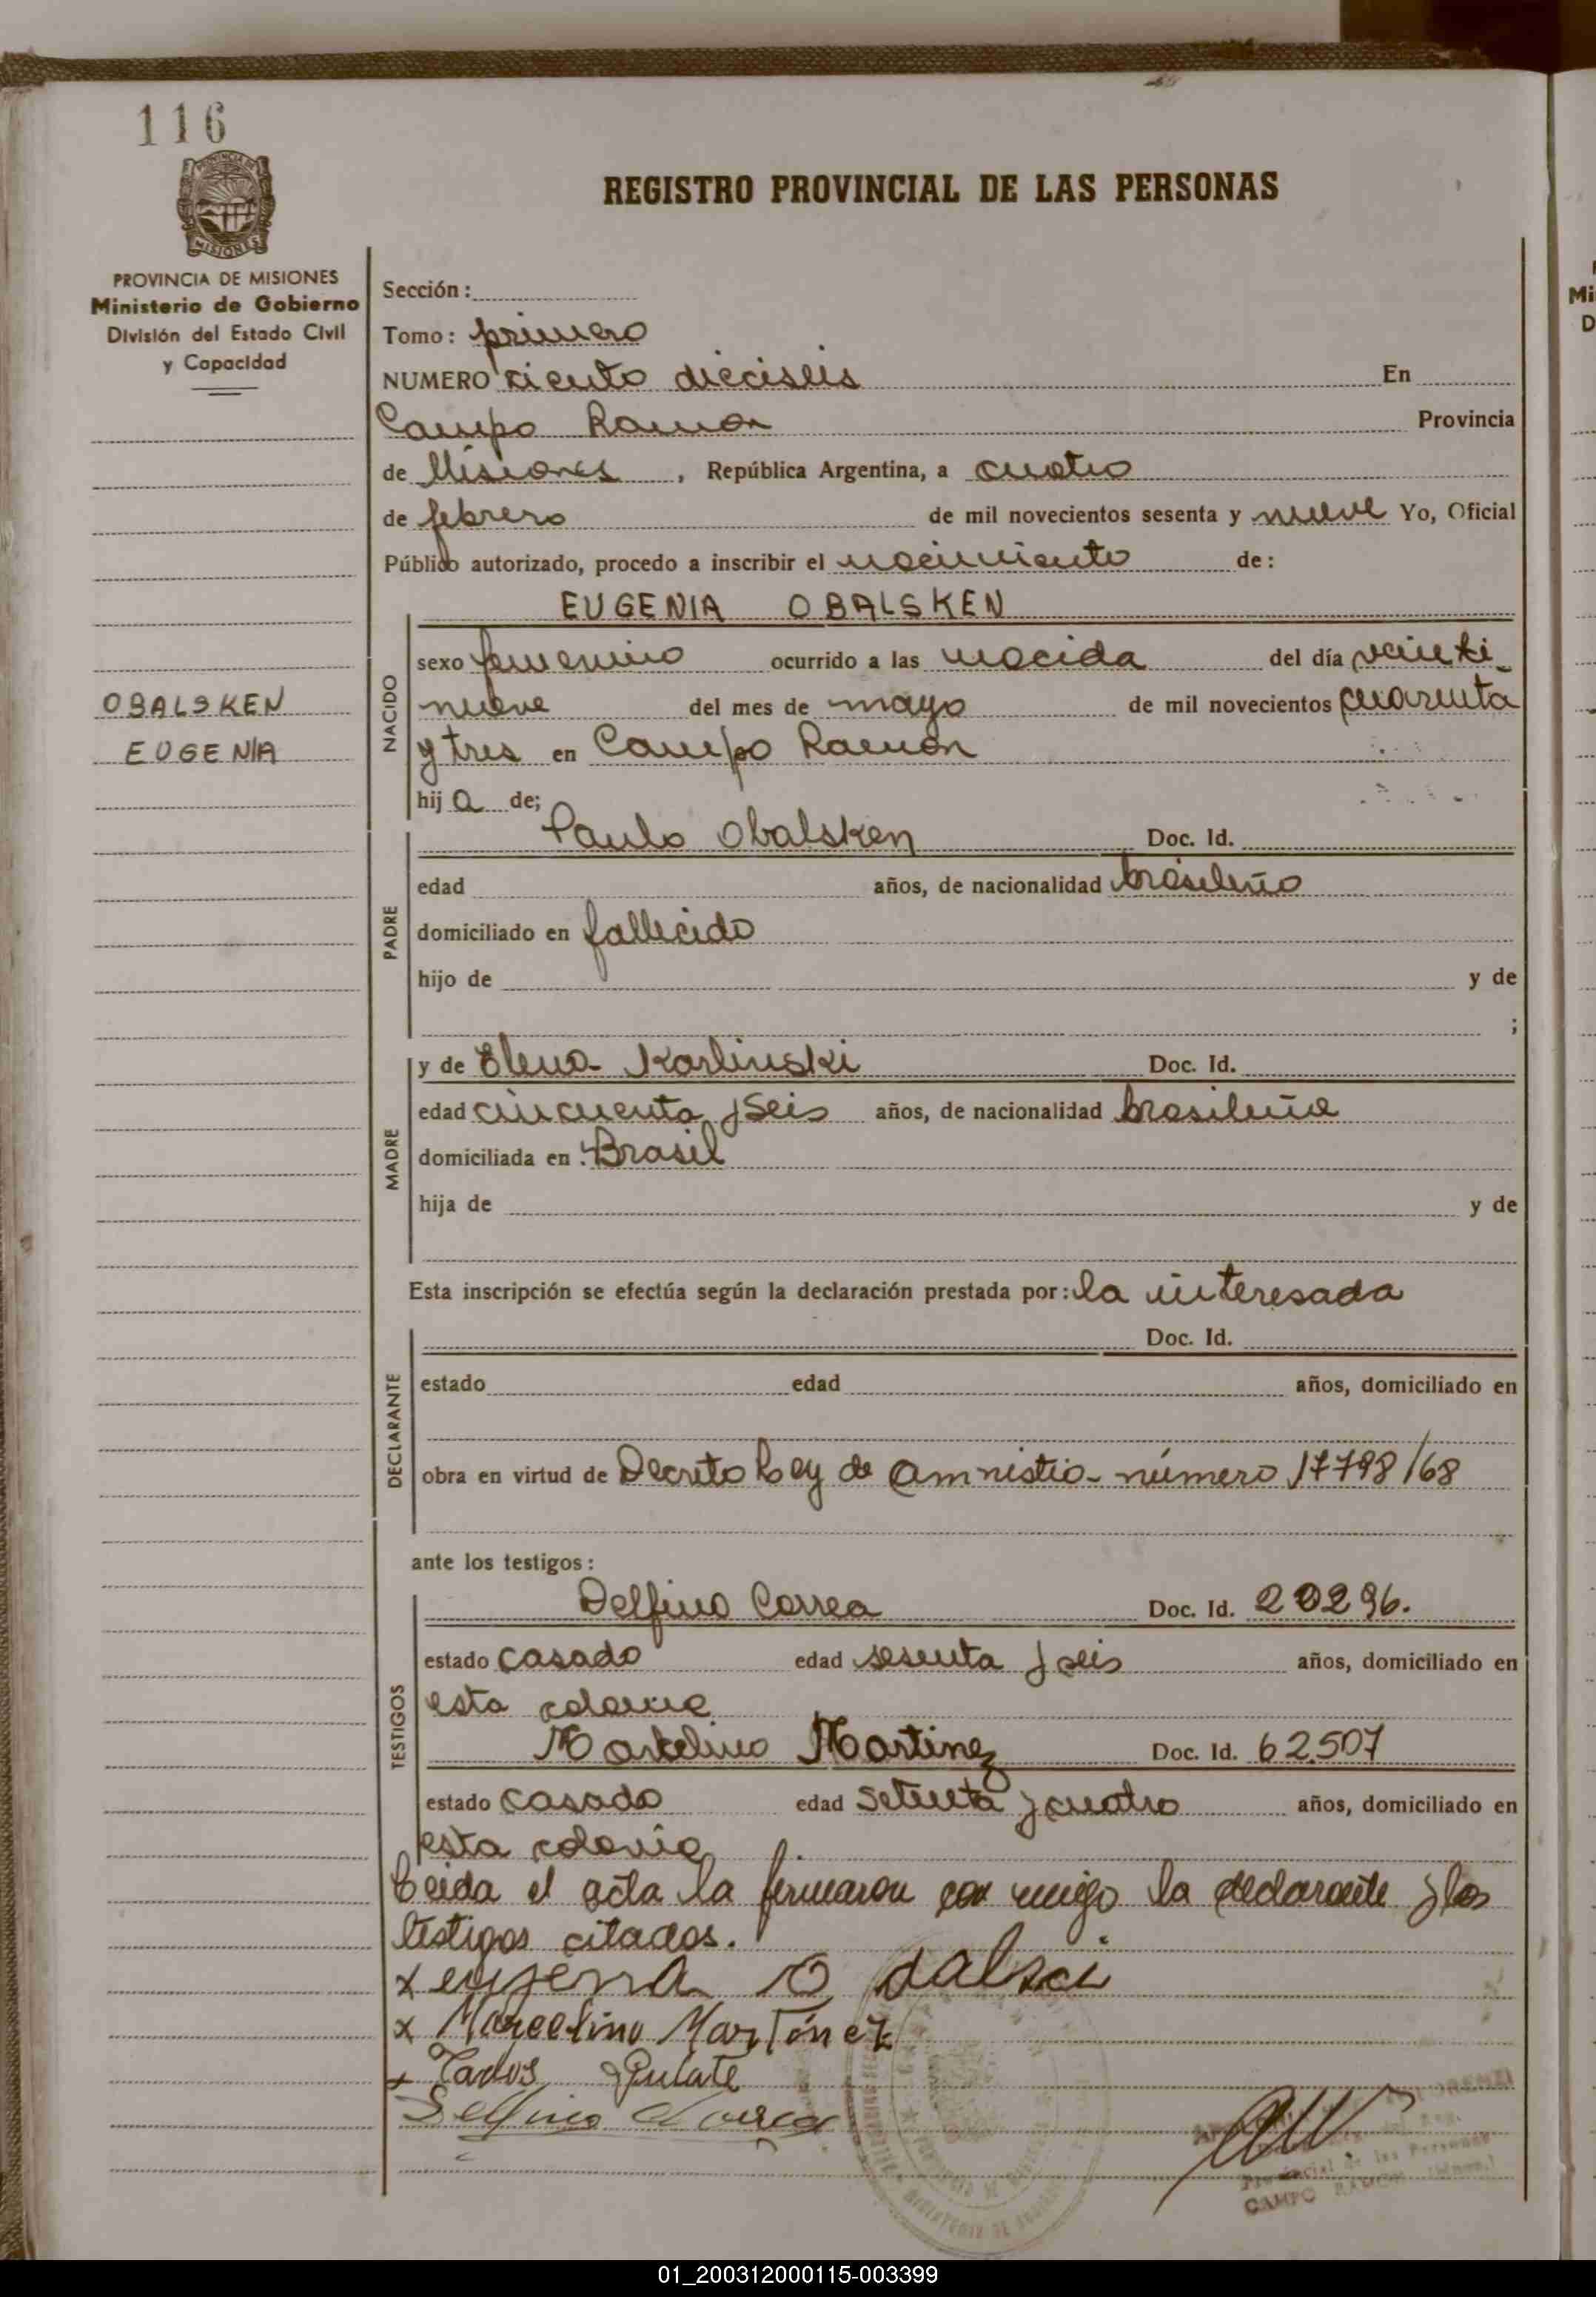 116
PROVINCIA DE MISIONES
Ministerio de Gobierno
División del Estado Civil
y Capacidad
OBALSKEN
EUGENIA
REGISTRO PROVINCIAL DE LAS PERSONAS
Sección:
Tomo: primero
NUMERO ciento dieciseis En
Campo Ramon Provincia
de Misiones, República Argentina, a cuatro
de febrero de mil novecientos sesenta y nueve Yo, Oficial
Público autorizado, procedo a inscribir el nacimiento de:
EUGENIA OBALSKEN
NACIDO
sexo femenino ocurrido a las nacida del día veinti
nueve del mes de mayo de mil novecientos cuarenta
y tres en Campo Ramón
hija de;
PADRE
Paulo Obalsken Doc. Id.
edad años, de nacionalidad brasileño
domiciliado en fallecido
hijo de y de
;
MADRE
y de Elena Karlinski Doc. Id.
edad cincuenta y seis años, de nacionalidad brasileña
domiciliada en: Brasil
hija de y de
Esta inscripción se efectúa según la declaración prestada por: la interesada
DECLARANTE
Doc. Id.
estado edad años, domiciliado en
obra en virtud de Decreto Ley de amnistia número 17798/68
ante los testigos:
TESTIGOS
Delfino Correa Doc. Id. 20296.
estado casado edad sesenta y seis años, domiciliado en
esta colonia
Marcelino Martinez Doc. Id. 62.507
estado casado edad setenta y cuatro años, domiciliado en
esta colonia
Leida el acta la firmaron con migo la declarante y los
testigos citados.
x eugenia O
x Marcelino Martínez
Delfino Correa
Provincial de las Personas
CAMPO RAMON
01_200312000115-003399